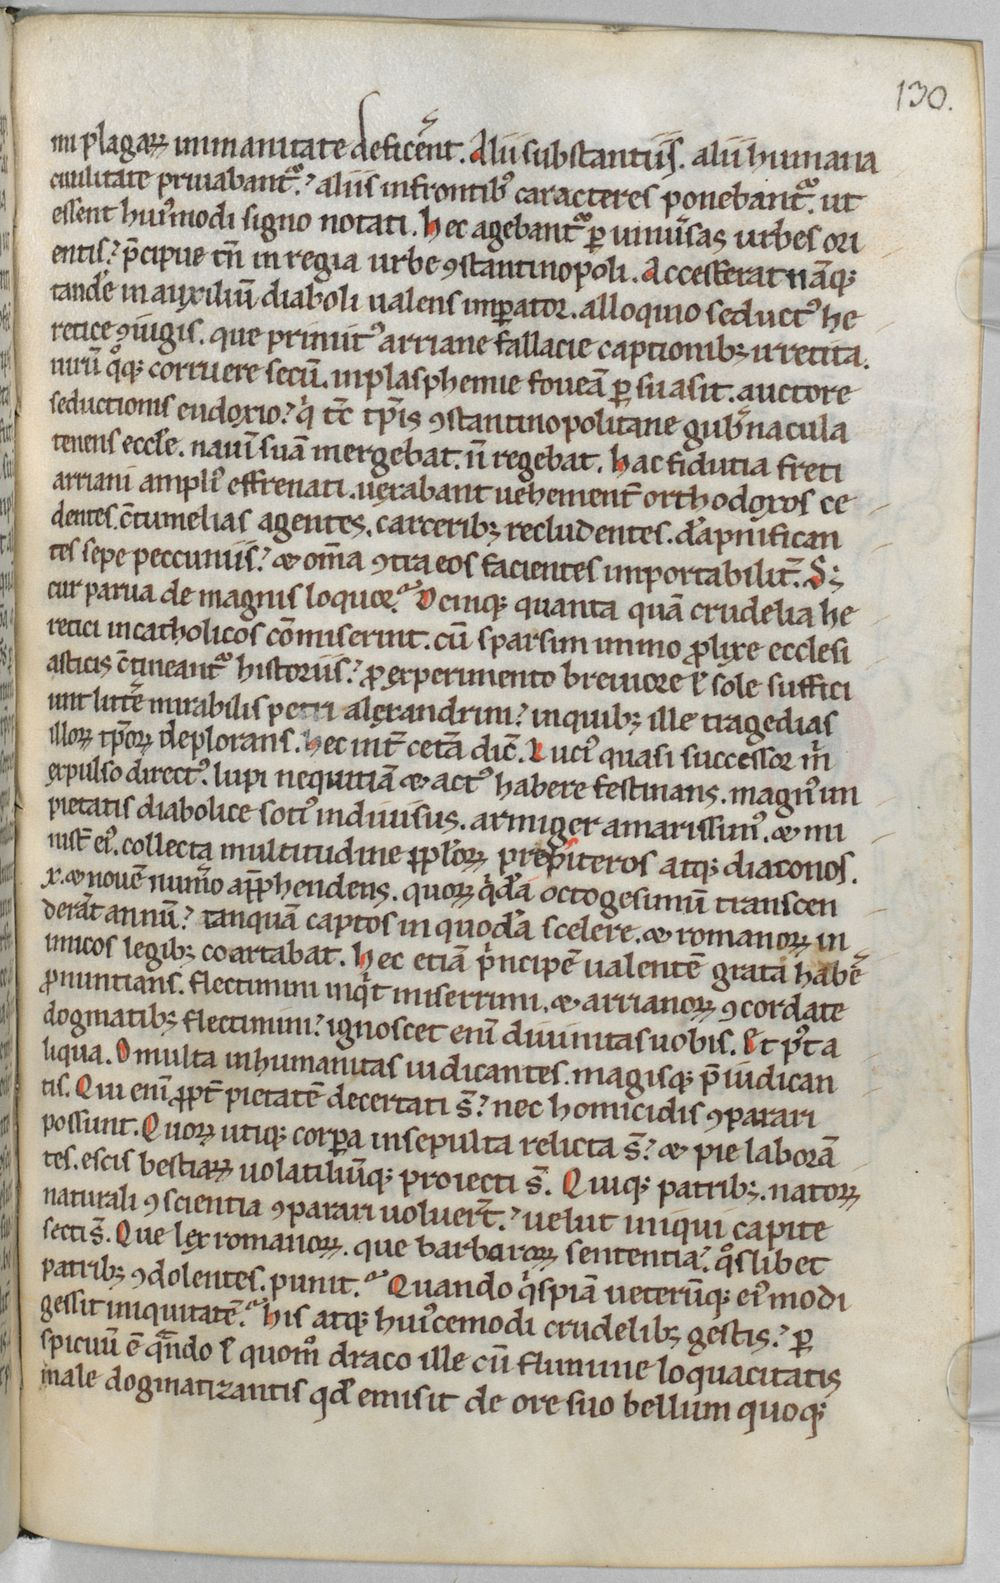 130.
ni plagaꝝ inmanitate deficeͤnt. Alii substantiis. alii humana
ciuilitate priuabantᷣ. aliis infrontibꝰ caracteres ponebantᷣ. ut
essent huiꝰmodi signo notati. Hec agebantᷣ ꝑ uniuͤsas urbes ori
entis. p̄cipue tn̄ in regia urbe ꝯstantinopoli. Accesserat nāqꝫ
tand̄e in auxiliū diaboli ualens imꝑator. alloquio seductꝰ he
retice ꝯiugis. que primitꝰ arriane fallacie captionibꝫ irretita.
uirū qͦqꝫ corruere secū. inplasphemie foueā ꝑsuasit. auctore
seductionis eudoxio. qͥ tc̄ tp̄is ꝯstantinopolitane gubͤnacula
tenens eccl̄e. nauī suā mergebat. n̄ regebat. Hac fidutia freti
arriani ampliꝰ effrenati. uexabant uehement̄ orthodoxos ce
dentes. c̄tumelias agentes. carceribꝫ recludentes. dāpnifican
tes sepe peccuniis. & om̄a ꝯtra eos facientes importabilit̄. Sꝫ
cur parua de magnis loquor. Deniqꝫ quanta quā crudelia he
retici in catholicos cōmiserint. cū sparsim immo ꝓlixe ecclesi
asticis c̄tineantᷣ historiis. ꝓ experimento breuiore ł sole suffici
unt litteͤ mirabilis petri alexandrini. inquibꝫ ille tragedias
illoꝝ tp̄oꝝ deplorans. hec int̄ cet̄a dic̄. Luciꝰ quasi successor mͥ
expulso directꝰ. lupi nequitiā & actꝰ habere festinans. magnꝰ im
pietatis diabolice sotiꝰ indiuisus. armiger amarissimꝰ. & mi
nist̄ eiꝰ. collecta multitudine ꝓpl̄oꝝ presbiteros atqꝫ diaconos.
x. & nouē numͤo app̄hendens. quoꝝ qͥdā octogesimū transcen
derāt annū. tanquā captos in quodā scelere. & romanoꝝ in
imicos legibꝫ coartabat. Hec etiā pͥncipē ualentē grata habēͤ
ꝓnuntians. flectimini inqͥt miserrimi. & arrianoꝝ ꝯcordate
dogmatibꝫ flectimini. ignoscet enī diuinitas uobis. Et pꝰt a
liqua. O multa inhumanitas iudicantes. magisqꝫ p̄iudican
tis. Qui enī ꝓpt̄ pietatē decertati s̄. nec homicidis ꝯparari
possunt. Quoꝝ utiqꝫ corꝑa insepulta relicta s̄. & pie laborā
tes. escis bestiaꝝ uolatiliūqꝫ proiecti s̄. Quiqꝫ patribꝫ. natoꝝ
naturali ꝯscientia ꝯparari uoluer̄t. uelut iniqui capite
secti s̄. Que lex romanoꝝ. que barbaroꝝ sententia. qͦslibet
patribꝫ ꝯdolentes. punit. Quando qͥspiā ueterūqꝫ eiꝰmodi
gessit iniquitatē. His atqꝫ huiꝰcemodi crudelibꝫ gestis. ꝑ
spicuū ē qᷓndo ł quomͦ draco ille cū flumine loquacitatis
male dogmatizantis qd̄ emisit de ore suo bellum quoqꝫ